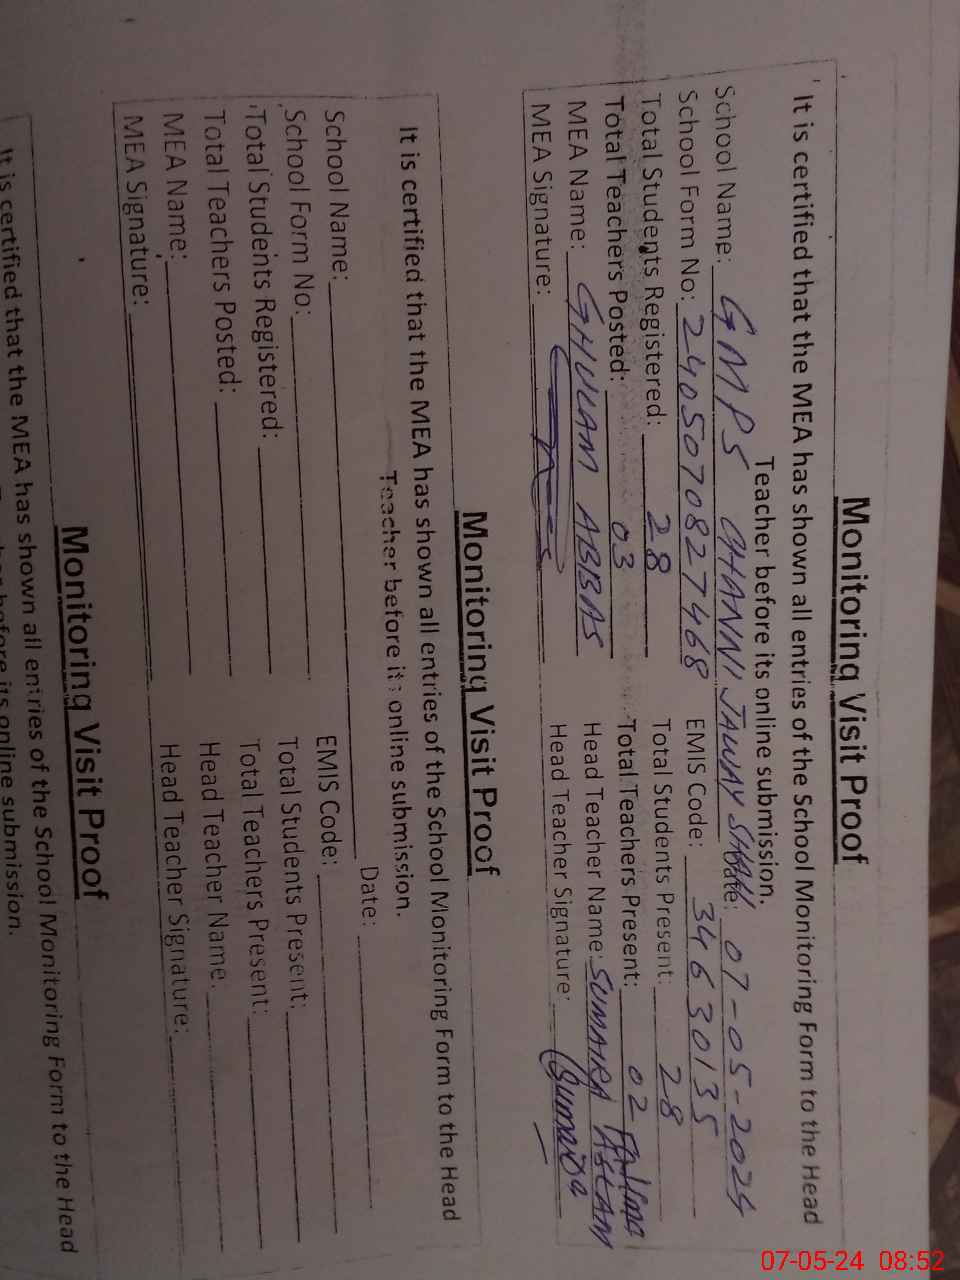 Monitoring Visit Proof
It is certified that the MEA has shown all entries of the School Monitoring Form to the Head
Teacher before its online submission.
School Name: GMPS CHANNI JAWAY SHAH Date: 07-05-2024
School Form No: 2405070827468 EMIS Code: 34630135
Total Students Registered: 28 Total Students Present: 28
Total Teachers Posted: 03 Total Teachers Present: 02
MEA Name: GHULAM ABBAS Head Teacher Name: SUMAIRA ASLAM
MEA Signature: Head Teacher Signature:
Monitoring Visit Proof
It is certified that the MEA has shown all entries of the School Monitoring Form to the Head
Teacher before its online submission.
School Name: Date:
School Form No: EMIS Code:
Total Students Registered: Total Students Present:
Total Teachers Posted: Total Teachers Present:
MEA Name: Head Teacher Name:
MEA Signature: Head Teacher Signature:
Monitoring Visit Proof
It is certified that the MEA has shown all entries of the School Monitoring Form to the Head
before its online submission.
07-05-24 08:52